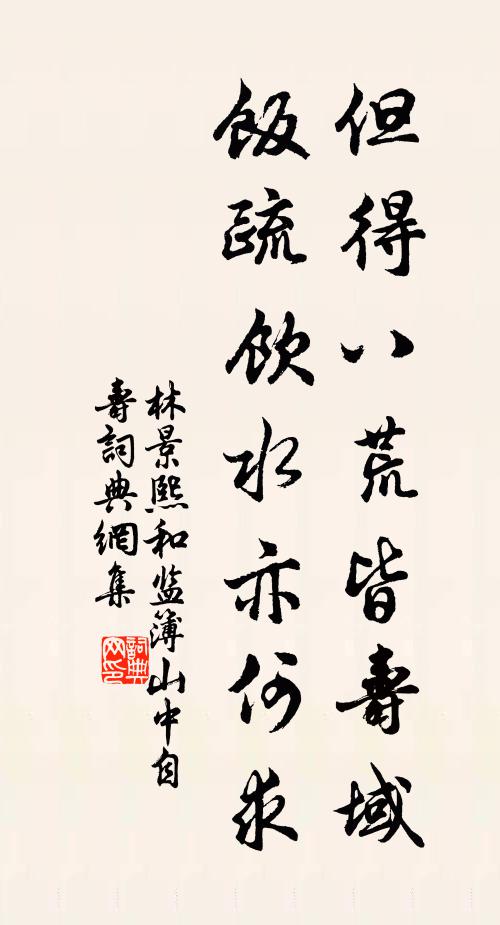 但得八荒皆壽域
飯疏飲水亦何求
林景熙和监簿山中自
壽詞典網集
詞典网印